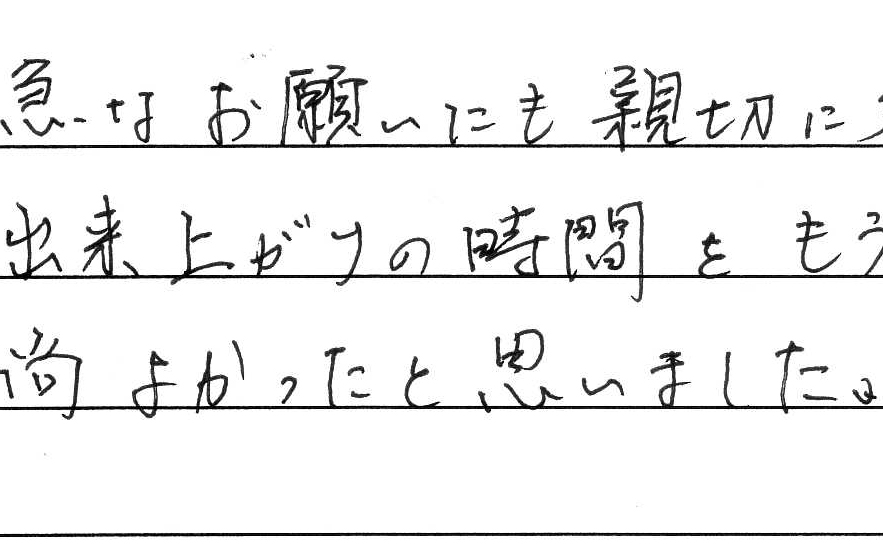 急なお願いにも親切に
出来上がりの時間をもう
尚よかったと思いました。